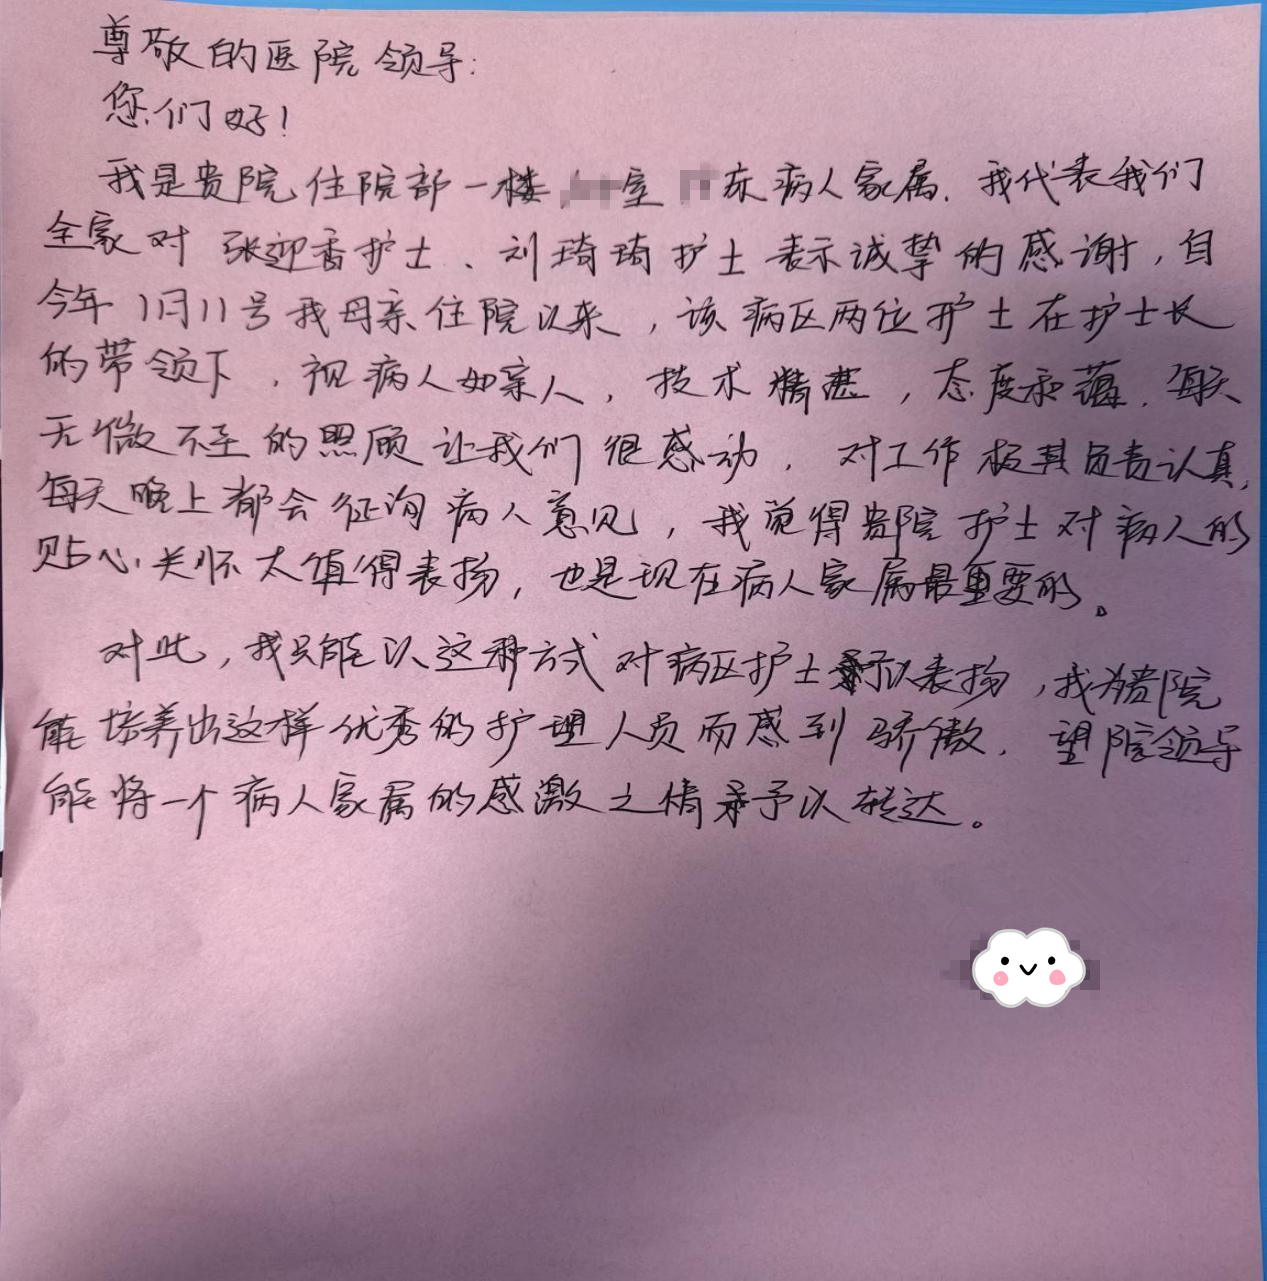 尊敬的医院领导:
您们好!
我是贵院住院部一楼 室 床病人家属.我代表我们
全家对 张迎香护士、刘琦琦护士表示诚挚的感谢,自
今年1月11号我母亲住院以来,该病区两位护士在护士长
的带领下,视病人如亲人,技术精湛,态度和蔼.每天
无微不至的照顾让我们很感动,对工作极其负责认真,
每天晚上都会征询病人意见,我觉得贵院护士对病人的
贴心关怀太值得表扬,也是现在病人家属最重要的。
对此,我只能以这种方式对病区护士予以表扬,我为贵院
能培养出这样优秀的护理人员而感到骄傲.望院领导
能将一个病人家属的感激之情予以转达。